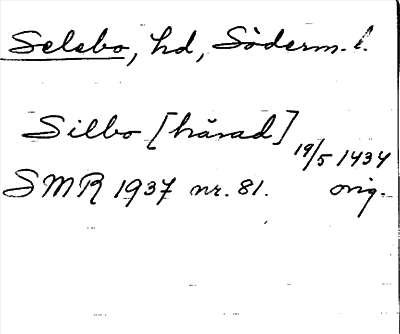 Selebo, hd, Söderm. l.
Silbo [härad]
19/5 1434
SMR 1937 nr. 81. orig.